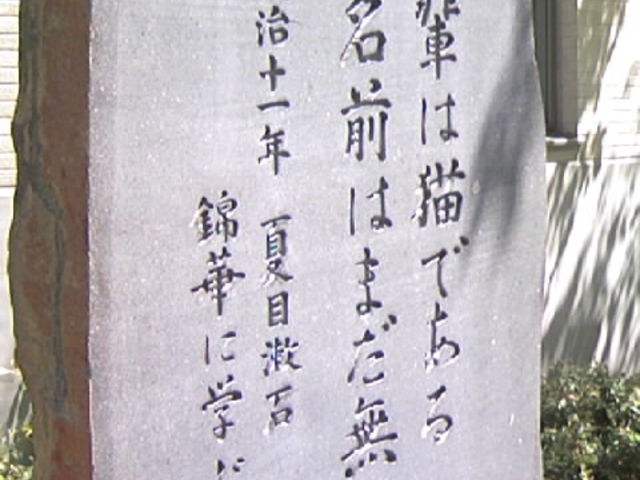 輩は猫である
名前はまだ無
治十一年 夏目漱石
錦華に学